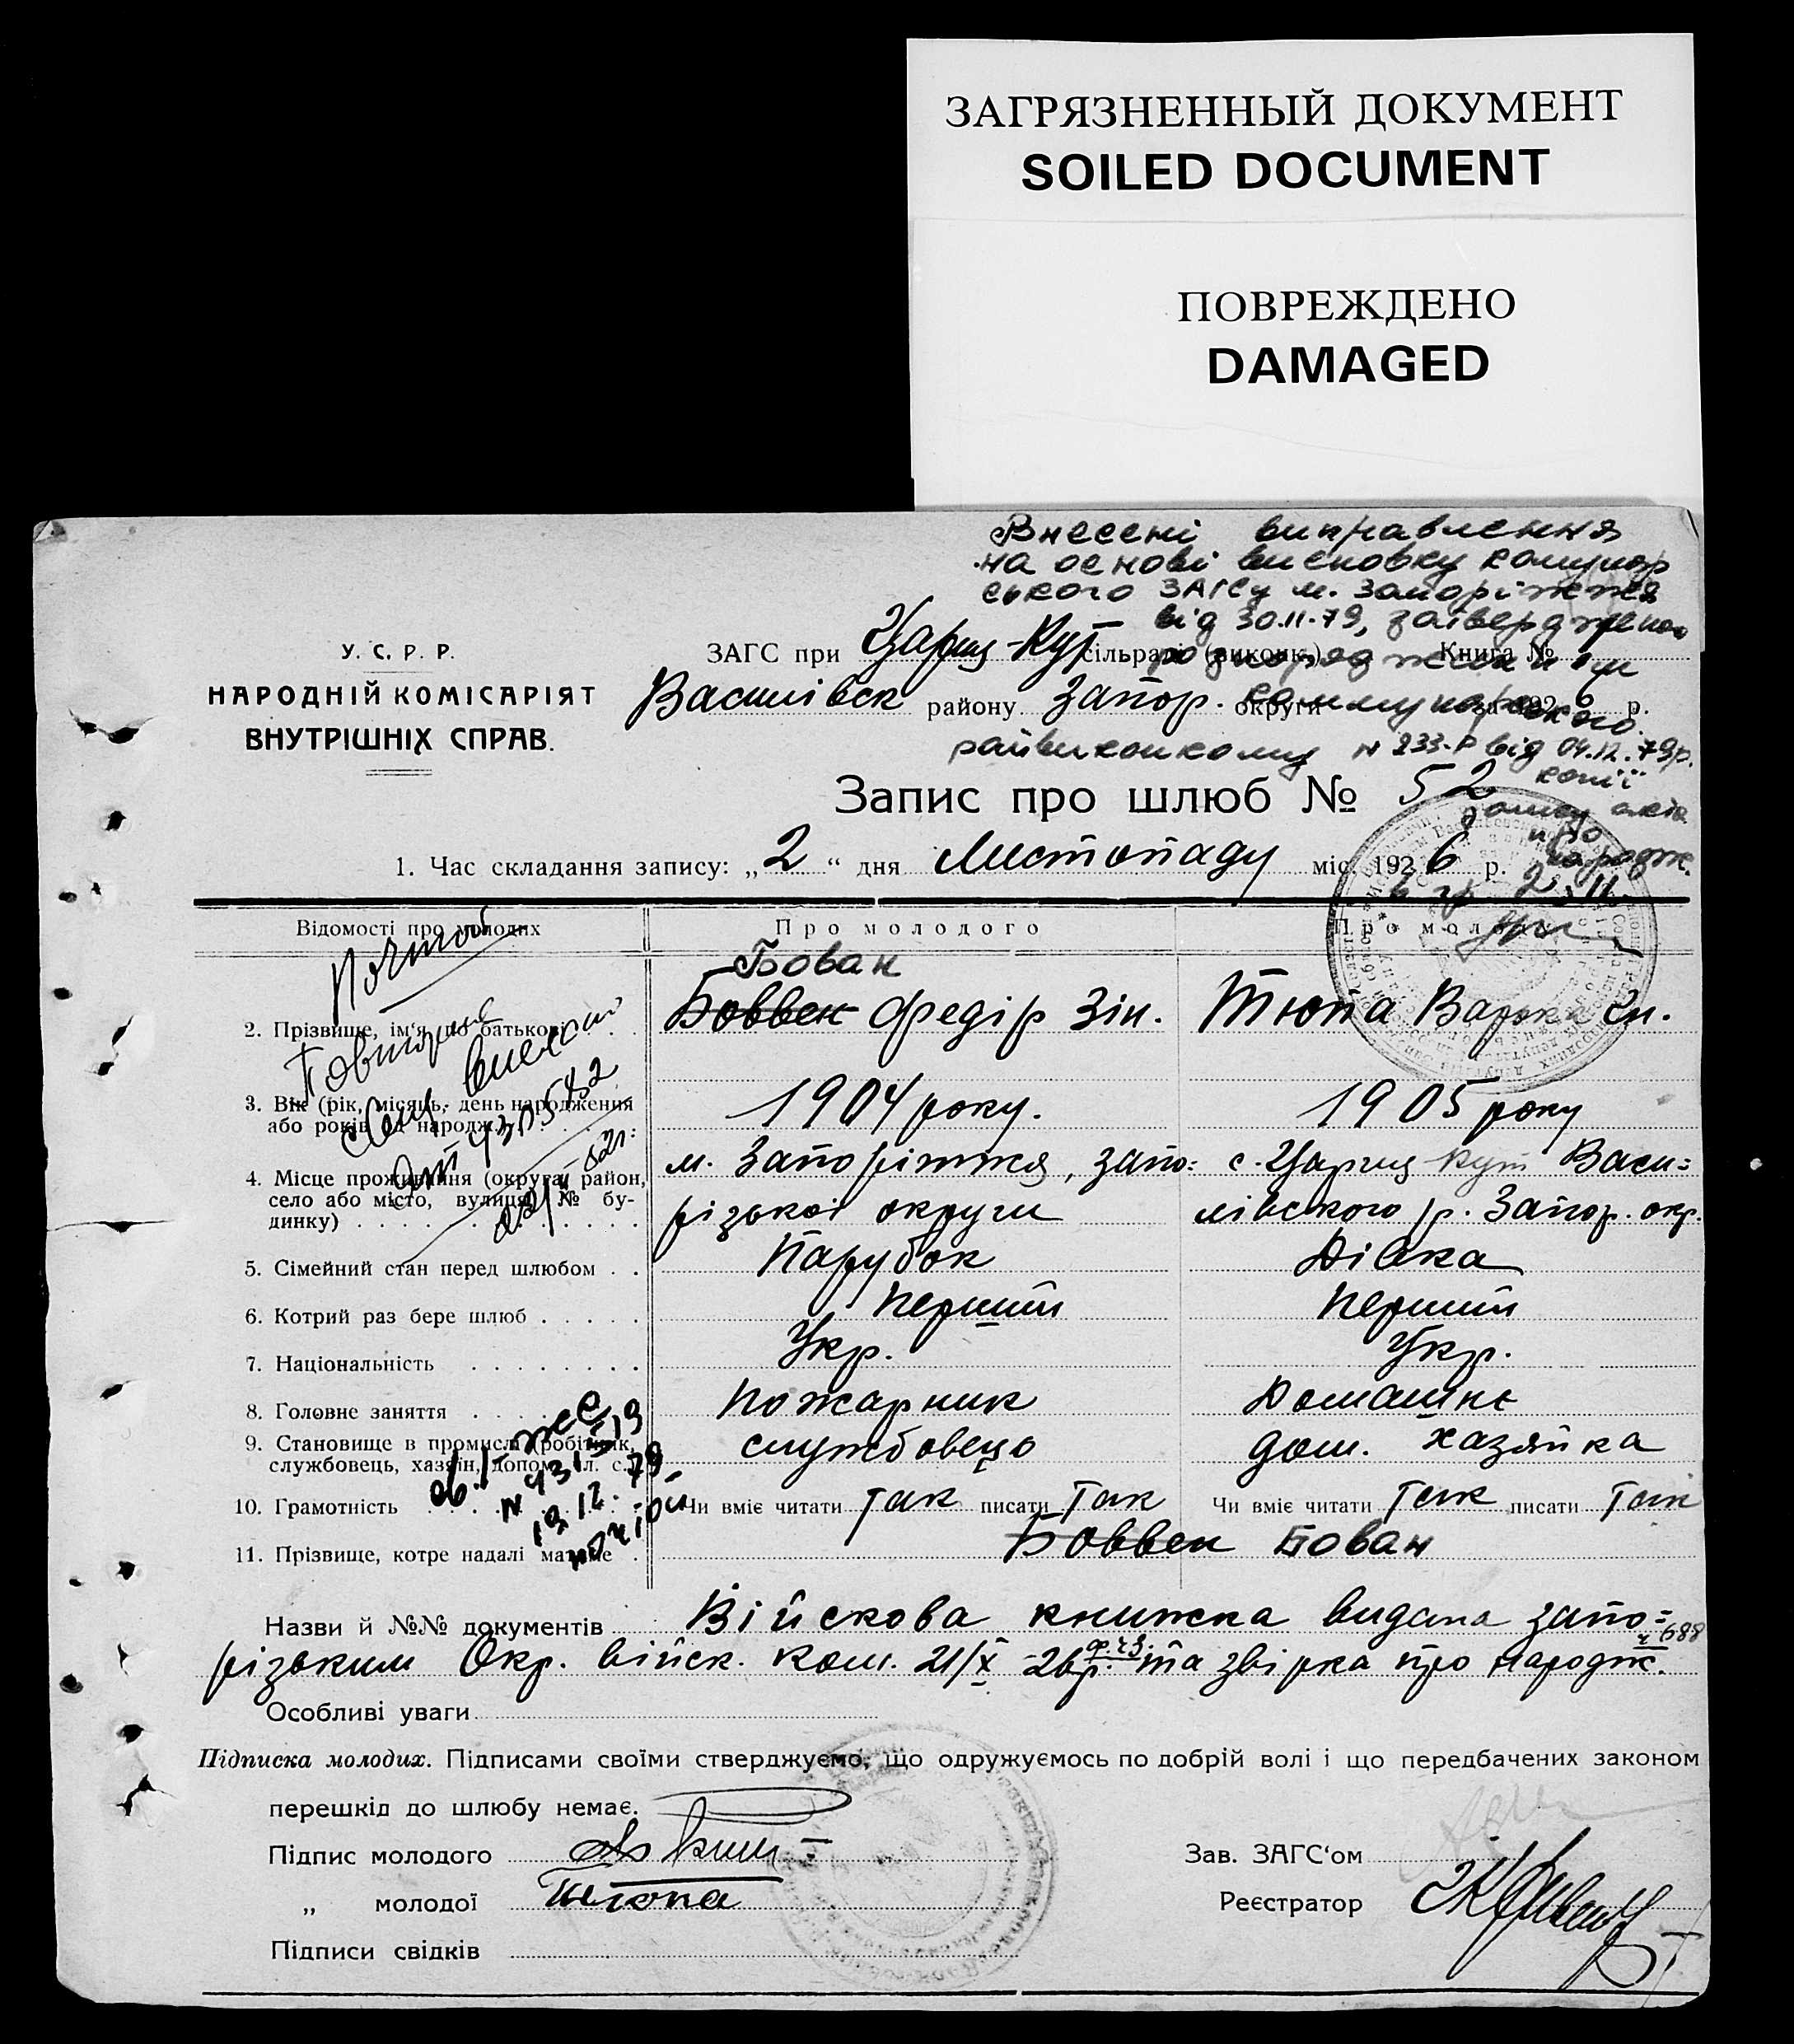 ЗАГРЯЗНЕННЫЙ ДОКУМЕНТ
SOILED DOCUMENT
ПОВРЕЖДЕНО
DAMAGED
Внесені виправлення
на основі висновку комунар
ського ЗАГСу м. Запоріжжя
від 30.11.79, затверджено
У. С. Р. Р.
НАРОДНІЙ КОМІСАРІЯТ
ВНУТРІШНІХ СПРАВ.
ЗАГС при Цариц-Кут сільраді (виконк.) Книга №
розпорядженням
Василівск району Запор. округи за 1926 р.
коммунарского
райвиконкому № 233-р від 04.12.79р.
копії
запису акта
про
народж.
Запис про шлюб № 52
1. Час складання запису: „2“ дня Листопаду міс. 1926 р.
Відомості про молодих
Про молодого
Про молоду
2. Прізвище, ім'я, по батькові
Бован
Боввен Федір Зін.
Тюпа Варка Ги.
3. Вік (рік, місяць, день народження
або років від народж.)
1904 року.
1905 року
4. Місце проживання (округа, район,
село або місто, вулиця, № бу-
динку)
м. Запоріжжя, запо=
різької округи
с. Цариц Кут Васи=
лівского р. Запор. окр.
5. Сімейний стан перед шлюбом
Парубок
Дівка
6. Котрий раз бере шлюб
Перший
Перший
7. Національність
Укр.
Укр.
8. Головне заняття
Пожарник
Домашнє
9. Становище в промислі (робітник,
службовець, хазяїн, допом. чл. с.)
службовець
дом. хазяйка
10. Грамотність
Чи вміє читати Так писати Так
Чи вміє читати Так писати Так
11. Прізвище, котре надалі матиме
Боввен Бован
Почтоб
Повторне
430542
13.12.79
Назви й №№ документів Війскова книжка видана запо=
різьким Окр. війск. ком. 21/X 26р. та звірка про народж. 688
Особливі уваги
Підписка молодих. Підписами своїми стверджуємо, що одружуємось по добрій волі і що передбачених законом
перешкід до шлюбу немає.
Підпис молодого
„ молодої Тюпа
Підписи свідків
Зав. ЗАГС'ом
Реєстратор